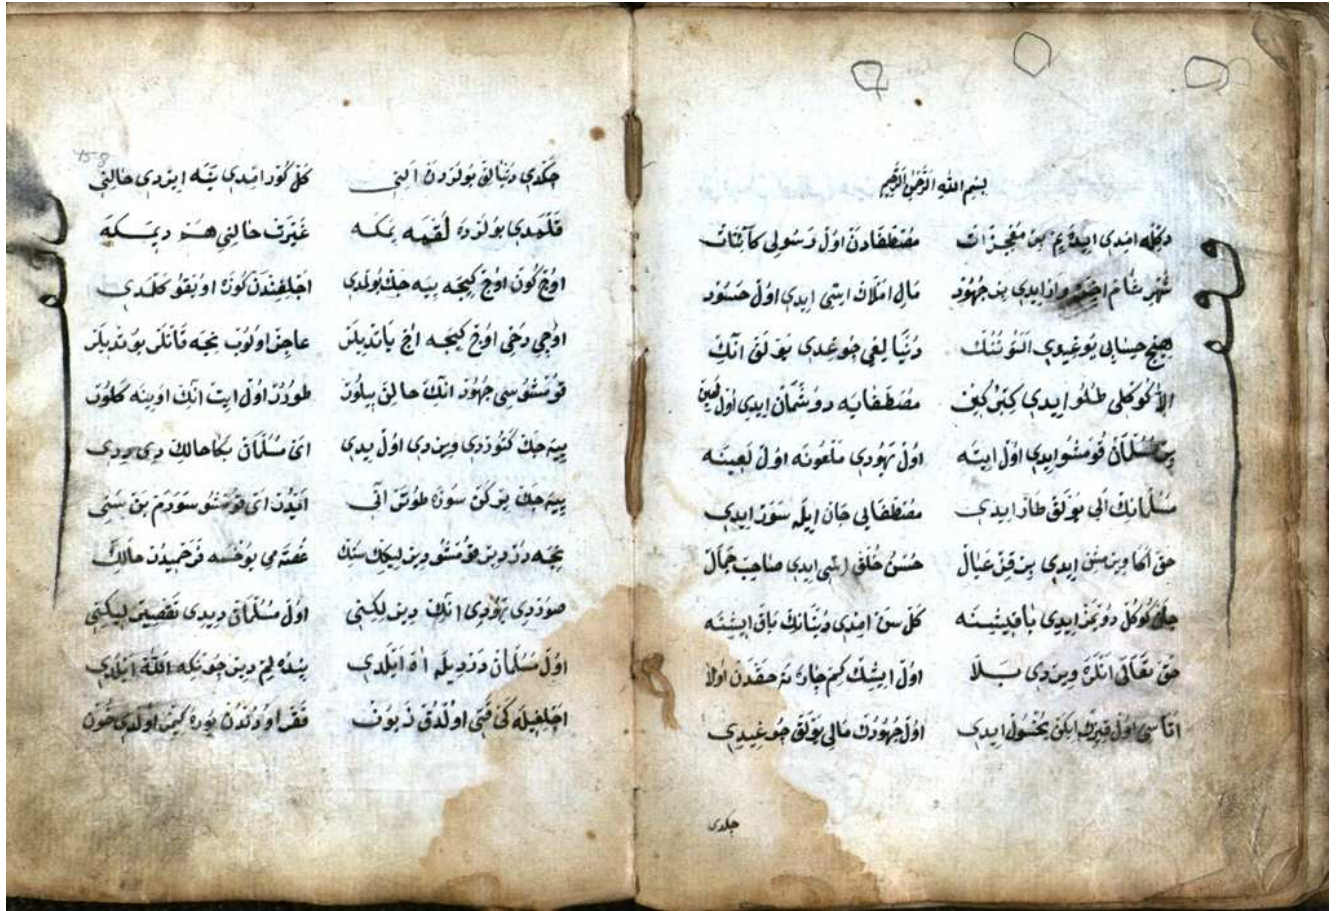 بسم الله الرحمن الرحيم
دكله امدى ايديم بن معجزات مصطفادن اول رسولى كائنات
شهر شام ايچنده وار ايدى بر جهود مال املاك ايسى ايدى اول حسود
هيچ حسابى يوغيدى التوننك دنيا لغى چوغدى يوللق انك
الا كوكلى طلو ايدى كبر كين مصطفايه دوشمان ايدى اول لعين
بر مسلمان قومشو ايدى اول ايته اول يهودى ملعونه اول لعينه
مسلمانك الى يوللق طار ايدى مصطفايى جان ايله سور ايدى
حق اكا ويرمش ايدى بر قز عيال حسن خلق ايسى ايدى صاحب جمال
كوكل دوتمز ايدى كل سن امدى دنيانك باق ايشنه
حق تعالى انلره ويردى بلا اول ايشك كم چاره نه حقدن اولا
اتاسى اول قيزك ايكن يخسول ايدى اول جهودك مالى يوللق چوغيدى
چكدى
چكدى دنيالق بولردن الينى كل كور امدى نيه ايردى حالنى
قلمدى بولرده لقمه يمكه غيرت حالنى هم ديمكه
اوچ كون اوچ كيجه ييه جك بولدى اچلغندن كوزه اويقو كلمدى
اوچى دخى اوچ كيجه اچ ياتديلر عاجز اولوب نيجه قانلر يوتديلر
قومشوسى جهود انك حالن بيلور طورر اول ايت انك اوينه كلور
ييه جك كتوردى ويردى اول يدى اى مسلمان بكا حالك دى دى
ييه جك يركن سوزه طوتر انى ايدر اى قومشو سورم بن سنى
نيجه در دير قومشو ديرليكك سنك غصه مى يوخسه خرميدر حالك
صوردى يهودى انك ديرلكنى اول مسلمان ديدى تقصيرليكنى
اول مسلمان درديله اه ايلدى بنده ليم دير چونكه الله ايلدى
اچلغيله كى قتى اولدق زبون فقر اودندن يوره كيمز اولدى خون